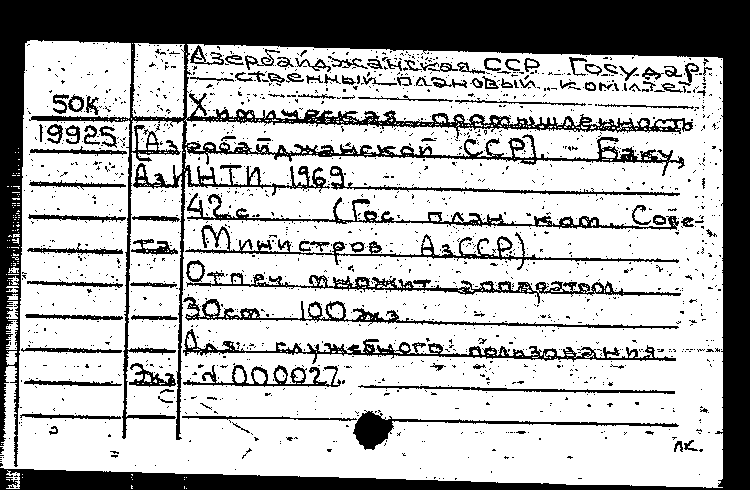 Азербайджанская ССР Государ-
ственный плановый комитет
50К Химическая промышленность
19925 [Азербайджанской ССР]. Баку,
АзИНТИ, 1969.
42 с. (Гос. план. ком. Сове-
та Министров АзССР).
Отпеч. множит. аппаратом.
30 см. 100 экз.
Для служебного пользования
Экз. № 000027.
лк.